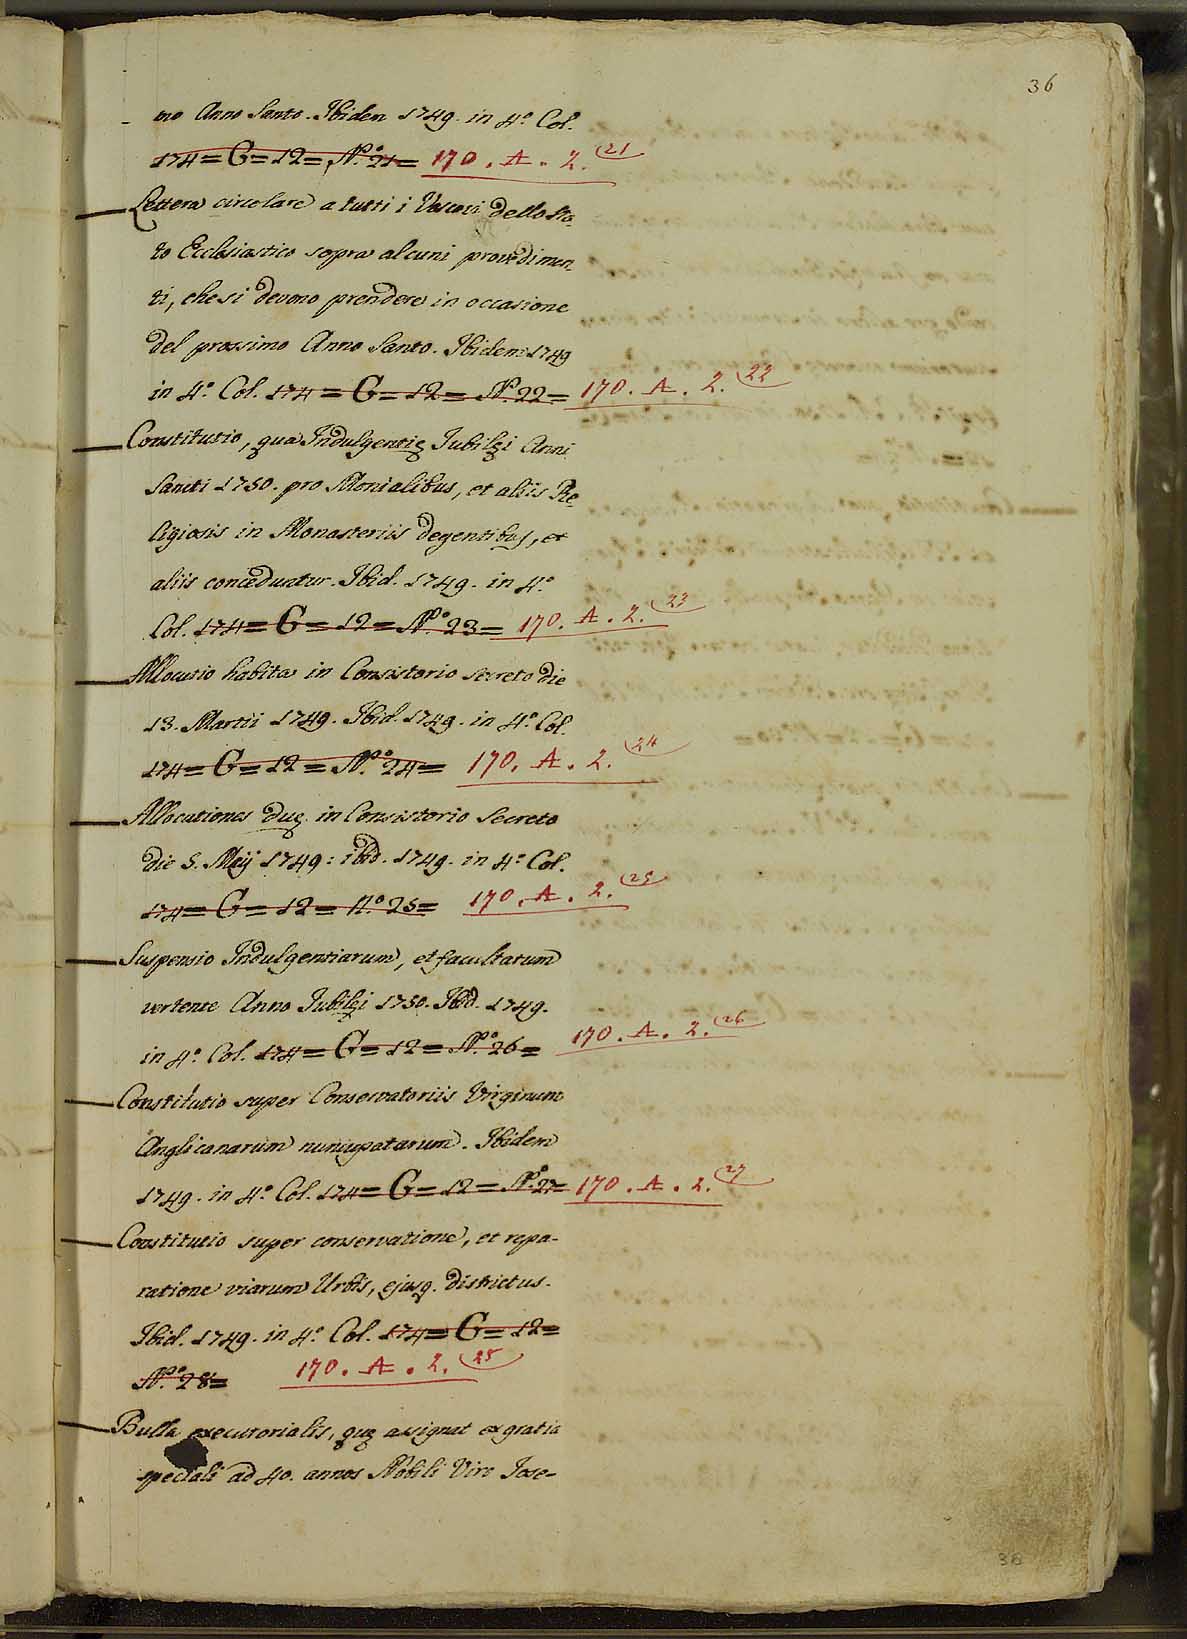 36
no Anno Santo. Ibidem 1749. in 4.º Col.
174 = G = 12 = N.º 21 = 170. A. 2. 21
Lettera circolare a tutti i Vescovi dello Sta-
to Ecclesiastico sopra alcuni provedimen-
ti, che si devono prendere in occasione
del prossimo Anno Santo. Ibidem 1749
in 4.º Col. 174 = G = 12 = N.º 22 = 170. A. 2. 22
Constitutio, qua Indulgentię Jubilęi Anni
Sancti 1750. pro Monialibus, et aliis Re-
ligiosis in Monasteriis degentibus, et
aliis conceduntur. Ibid. 1749. in 4.º
Col. 174 = G = 12 = N.º 23 = 170. A. 2. 23
Allocutio habita in Consistorio secreto die
13. Martii 1749. Ibid. 1749. in 4.º Col.
174 = G = 12 = N.º 24 = 170. A. 2. 24
Allocutiones duę in Consistorio Secreto
die 5. Maij 1749: ibid. 1749. in 4.º Col.
174 = G = 12 = N.º 25 = 170. A. 2. 25
Suspensio Indulgentiarum, et facultatum
vertente Anno Jubilęi 1750. Ibid. 1749.
in 4.º Col. 174 = G = 12 = N.º 26 = 170. A. 2. 26
Constitutio super Conservatoriis Virginum
Anglicanarum nuncupatarum. Ibidem
1749. in 4.º Col. 174 = G = 12 = N.º 27 = 170. A. 2. 27
Constitutio super conservatione, et repa-
ratione viarum Urbis, ejusq. districtus.
Ibid. 1749. in 4.º Col. 174 = G = 12 =
N.º 28 = 170. A. 2. 25
Bulla executorialis, quę assignat ex gratia
speciali ad 40. annos Nobili Viro Jose-
36